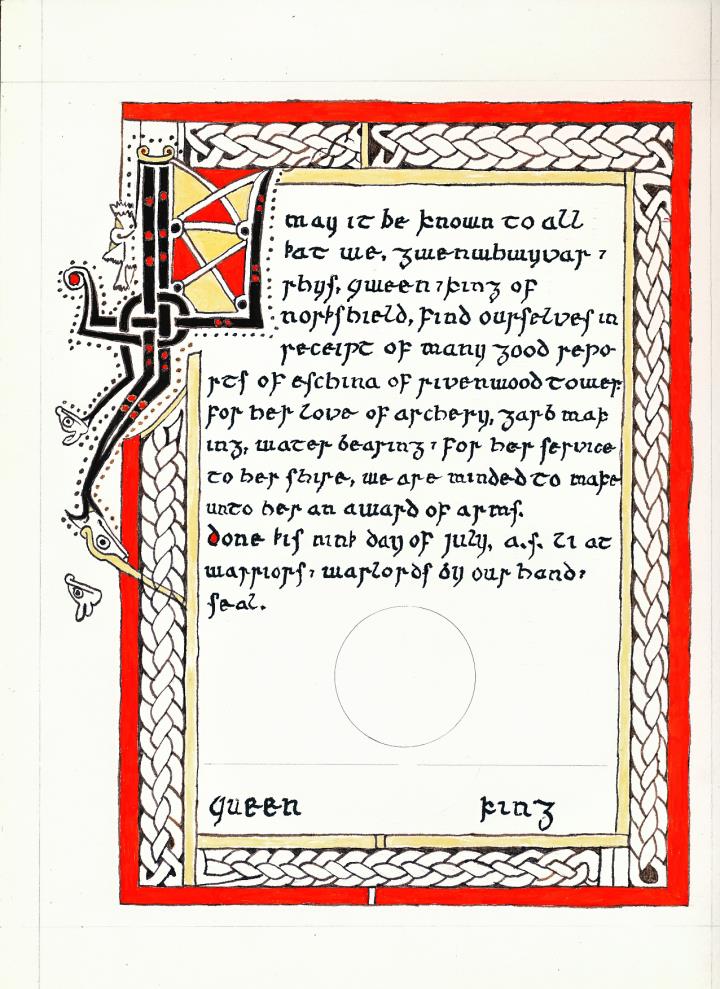 may it be known to all
þat we, gwenwhwyvar ⁊
rhys, qween ⁊ king of
norþshield, find ourselves in
receipt of many good repo-
rts of eschina of rivenwood tower
for her love of archery, garb mak
ing, water bearing ⁊ for her service
to her shire, we are minded to make
unto her an award of arms.
done þis ninþ day of july, a.s. li at
warriors ⁊ warlords by our hand ⁊
seal.
queen king